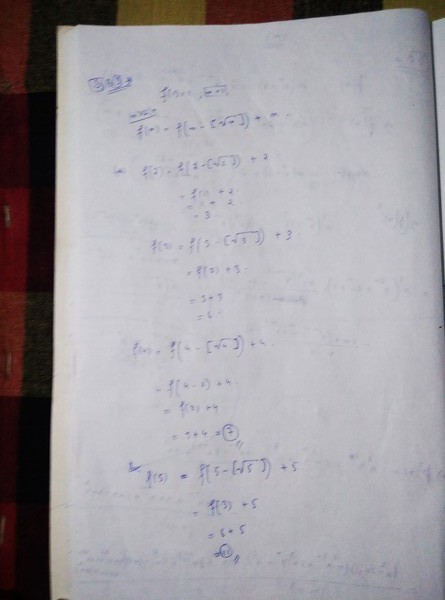 f(1)=1
f(n) = f(n - [√n]) + n
f(2) = f(2 - [√2]) + 2
= f(1) + 2
= 1 + 2
= 3
f(3) = f(3 - [√3]) + 3
= f(2) + 3
= 3+3
= 6
f(4) = f(4 - [√4]) + 4
= f(4-2) + 4
= f(2) + 4
= 3+4 = 7
f(5) = f(5 - [√5]) + 5
= f(3) + 5
= 6+5
= 11